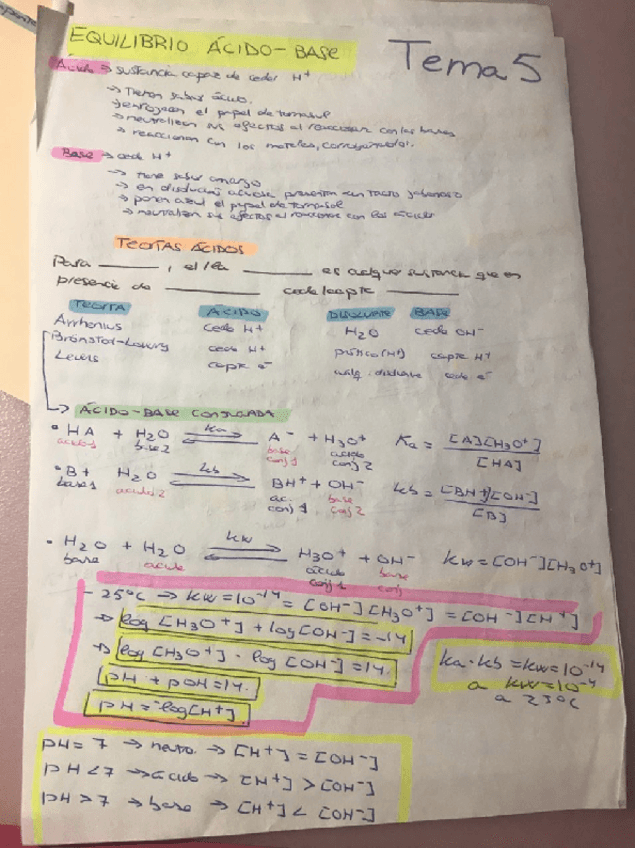 EQUILIBRIO ÁCIDO-BASE
Tema 5
Ácido → sustancia capaz de ceder H+
→ Tienen sabor ácido.
→ enrojecen el papel de tornasol
→ neutralizan sus efectos al reaccionar con las bases
→ reaccionan con los metales,
Base → cede H+
→ tiene sabor amargo
→ en disolución acuosa presentan un tacto jabonoso
→ ponen azul el papel de tornasol
→ neutralizan sus efectos al reaccionar con los ácidos
TEORÍAS ÁCIDOS
Para ______, el/la ______ es cualquier sustancia que en
presencia de ______ cede/capte ______
TEORIA ÁCIDO DISOLVENTE BASE
Arrhenius cede H+ H2O cede OH-
Brönsted-Lowry cede H+ prótico (H+) capta H+
Lewis capta e- cede e-
↳ ÁCIDO-BASE CONJUGADA
• HA + H2O ⇌ A- + H3O+ Ka = [A][H3O+] / [HA]
Ka
ácido 1 base 2 base conj 1 ácido conj 2
• B + H2O ⇌ BH+ + OH- Kb = [BH+][OH-] / [B]
kb
base 1 ácido 2 ac. conj 1 base conj 2
• H2O + H2O ⇌ H3O+ + OH- kw = [OH-][H3O+]
kw
base ácido ácido conj 1 base conj
- 25ºC → kw = 10-14 = [OH-][H3O+] = [OH-][H+]
→ log [H3O+] + log [OH-] = -14
→ log [H3O+] - log [OH-] = 14.
pH + pOH = 14.
pH = -log[H+].
ka · kb = kw = 10-14
a kw = 10-4
a 25ºC
pH = 7 → neutro → [H+] = [OH-]
pH < 7 → ácido → [H+] > [OH-]
pH > 7 → base → [H+] < [OH-]